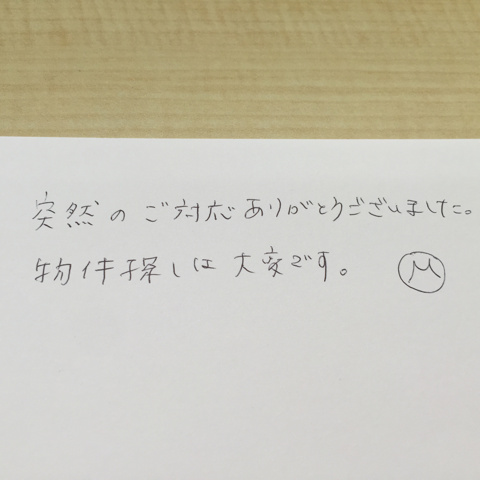 突然のご対応ありがとうございました。
物件探しは大変です。 M